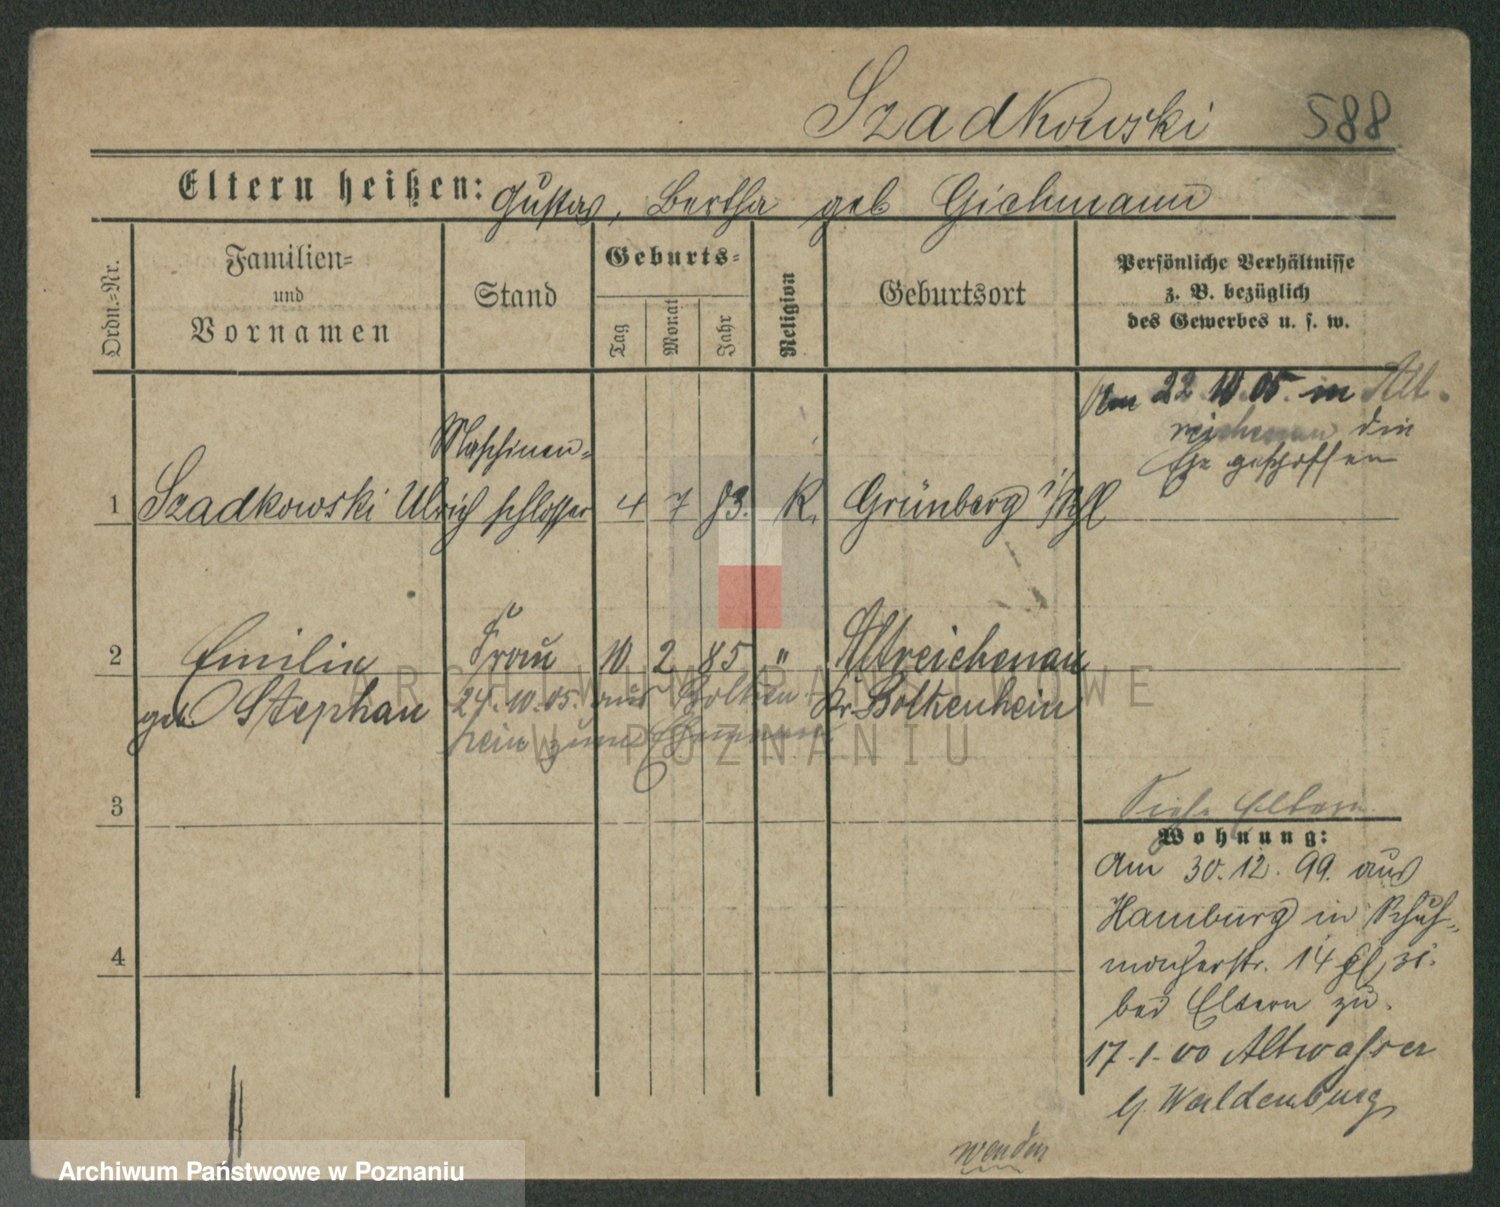 Szadkowski 588
Eltern heißen: Gustav, Bertha geb Gichmann
Ordn.=Nr.
Familien=
und
Vornamen
Stand
Geburts=
Tag
Monat
Jahr
Religion
Geburtsort
Persönliche Verhältnisse
z. B. bezüglich
des Gewerbes u. s. w.
Am 22.10.05. in Alt-
reichenau die
Ehe geschlossen
Maschinen-
1 Szadkowski Ulrich schlosser 4 7 83. K. Grünberg i/Schl
2 Emilie Frau 10 2 85 " Altreichenau
geb Stephan 24.10.05. aus Bolken- Kr. Bolkenhein
hein zum Ehemann
3
4
Siehe Eltern
Wohnung:
Am 30.12.99. aus
Hamburg in Schuh-
macherstr. 14
bei Eltern zu.
17.1.00 Altwasser
b/ Waldenburg
wenden
ARCHIWUM PAŃSTWOWE
W POZNANIU
Archiwum Państwowe w Poznaniu